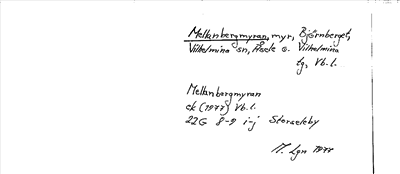 Mellanbergmyran, myr, Björnberget,
Vilhelmina sn, Åsele o. Vilhelmina
tg, Vb. l.
Mellanbergmyran
ek (1977) Vb. l.
22G 8-9 i-j Storseleby
M. Lgn 1977